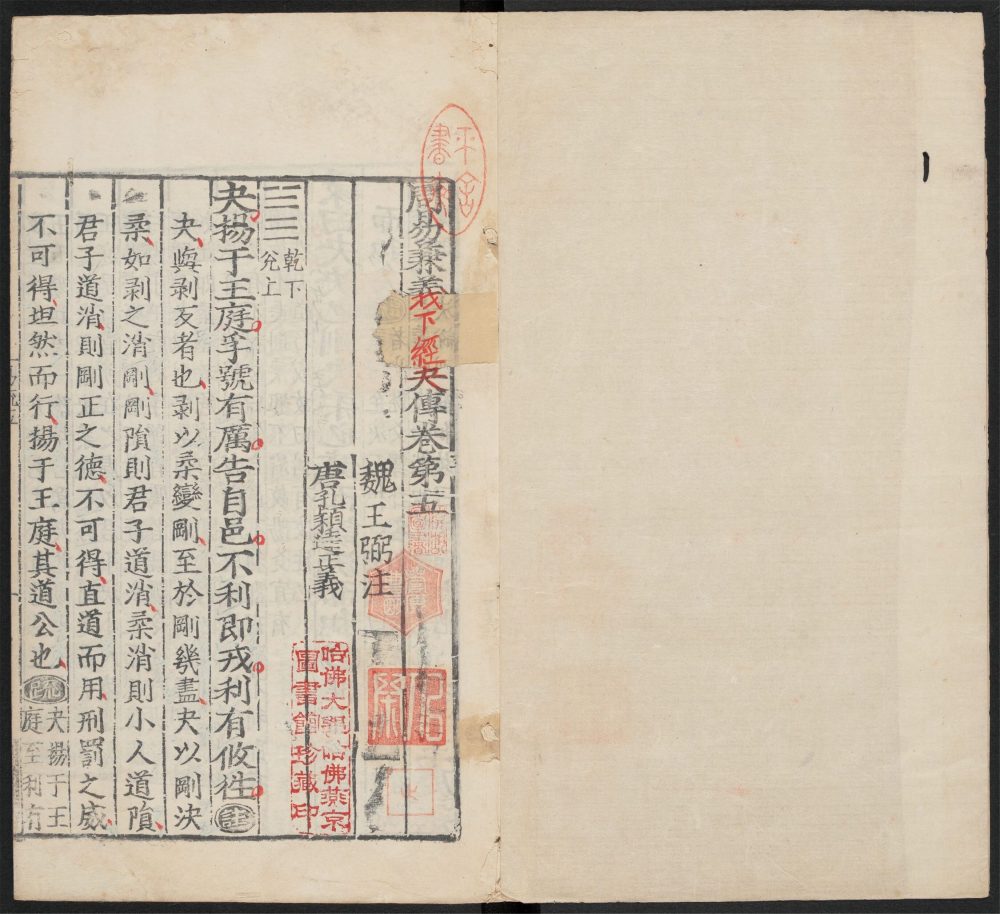 周易兼義下經夬傳卷第五
魏王弼注
唐孔穎達正義
乾下
兌上
夬揚于王庭孚號有厲告自邑不利即戎利有攸往註
夬與剥反者也剥以柔變剛至於剛幾盡夬以剛決
柔如剥之消剛剛隕則君子道消柔消則小人道隕
君子道消則剛正之德不可得直道而用刑罰之威
不可得坦然而行揚于王庭其道公也疏夬揚于王
庭至利有
哈佛大學哈佛燕京
圖書館珍藏印